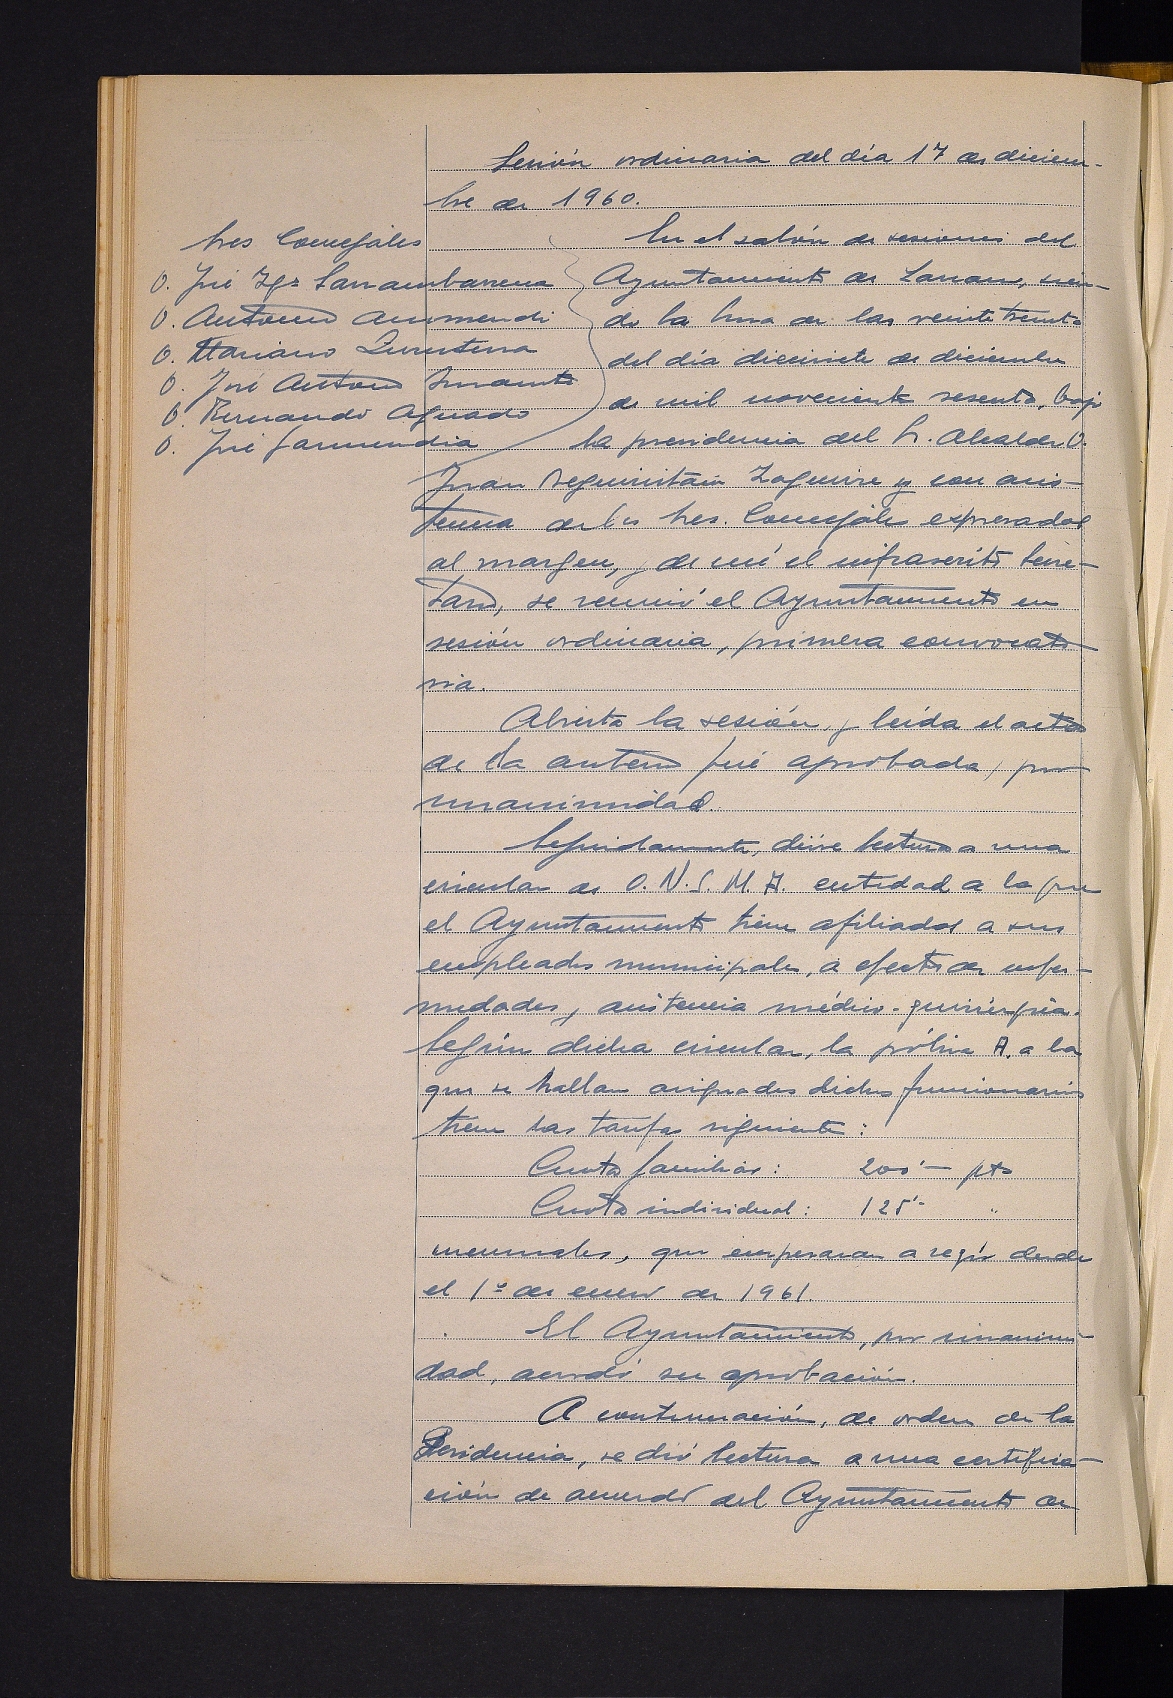 Sesión ordinaria del día 17 de diciem-
bre de 1960.
Sres Concejales
D. José Igº Sarrambarrena
D. Antonio Arizmendi
D. Mariano
D. José Antonio
D. Fernando Aguado
D. José Garmendia
En el salón de sesiones del
Ayuntamiento de, sien-
do la hora de las veinte treinta
del día diecisiete de diciembre
de mil novecientos sesenta, bajo
la presidencia del Sr. Alcalde D.
Juan Izaguirre y con asis-
tencia de los Sres. Concejales expresados
al margen, y de mí el infrascrito Secre-
tario, se reunió el Ayuntamiento en
sesión ordinaria, primera convocato
ria.
Abierta la sesión y leída el acta
de la anterior fué aprobada, por
unanimidad.
Seguidamente, dióse lectura a una
circular de O.N.S.M.A. entidad a la que
el Ayuntamiento tiene afiliados a sus
empleados municipales, a efectos de enfer-
medades, asistencia médico-quirúrgica.
Según dicha circular, la póliza A. a la
que se hallan asignados dichos funcionarios
tiene las tarifas siguientes:
Cuota familiar: 200'- pts
Cuota individual: 125'- "
mensuales, que empezaran a regir desde
el 1º de enero de 1961.
El Ayuntamiento, por unanimi-
dad, acordó su aprobación.
A continuación, de orden de la
Presidencia, se dió lectura a una certifica-
ción de acuerdo del Ayuntamiento de